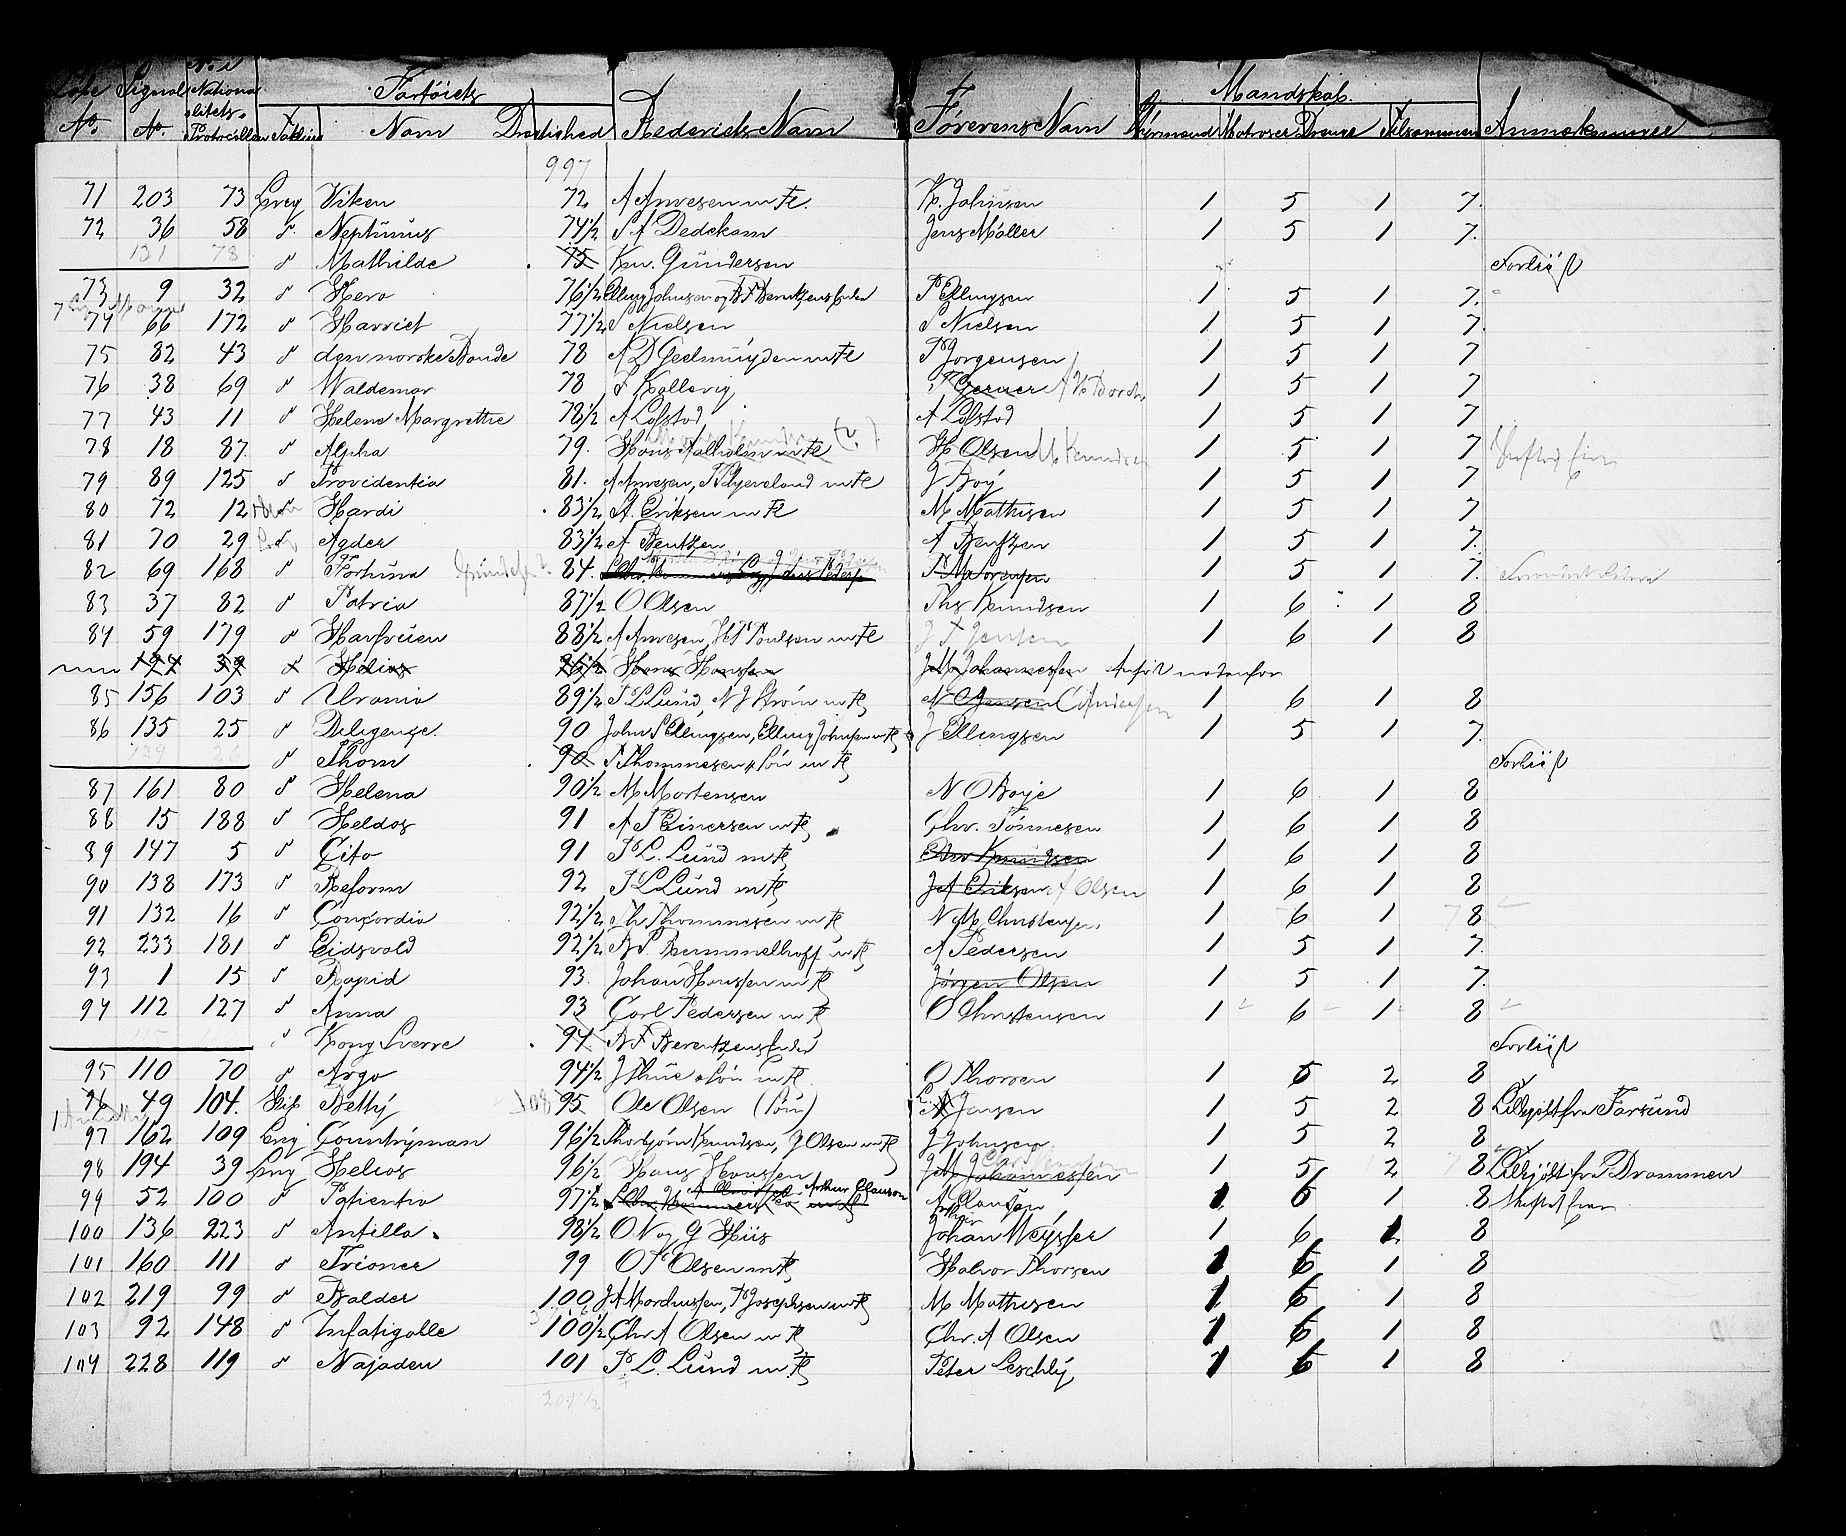 Løbe Signal No. i Nationa- Fartøiets Rederiets Navn Førerens Navn Mandskab. Anmærkninger
No. No. litets- Protocollen Takling Navn Drægtighed Styrmænd Matroser Drenge Tilsammen
997
71 203 73 Brig Viken 72 A Arnesen m fl. K. Johnsen 1 5 1 7.
72 36 58 " Neptunus 74 1/2 S A Dedekam Jens Møller 1 5 1 7.
131 78 " Mathilde 75 Kn. Gundersen Forliist
73 9 32 " Hero 76 1/2 Elling Johnsen og B F Berntzens Enke P Ellingsen 1 5 1 7.
74 66 172 " Harriet 77 1/2 S Nielsen S Nielsen 1 5 1 7.
75 82 43 " den norske Bonde 78 A D Geelmuyden m fl P Jørgensen 1 5 1 7
76 38 69 " Waldemar 78 S Kallevig T Gerner 1 5 1 7
77 43 11 " Helene Margrethe 78 1/2 A Løfstad A Løfstad 1 5 1 7
78 18 87 " Alpha 79. Hans Aalholm m fl H Olsen M Knudsen 1 5 1 7
79 89 125 " Providentia 81. A Arnesen, m fl J Bøy 1 5 1 7
80 72 12 " Hardi 83 1/2 A. Eriksen m fl M Mathisen 1 5 1 7
81 70 29 " Agder 83 1/2 A Bentzen A Bentzen 1 5 1 7.
82 69 168 " Fortuna 84. P M Sørensen 1 5 1 7.
83 37 82 " Patria 87 1/2 O Olsen Ths Knudsen 1 6 1 8
84 59 179 " Havfruen 88 1/2 A Arnesen, H P Poulsen m fl J T Jensen 1 6 1 8
194 39 " Helios 96 1/2 Hans Hansen J M Johannessen Anført nedenfor
85 156 103 " Urania 89 1/2 P L Lund, N J Strøm m fl N C Jensen C Andersen 1 6 1 8
86 135 25 " Diligence. 90 John P Ellingsen, Elling Johnsen m fl J Ellingsen 1 5 1 7.
129 26 " Thorn 90 P Thommesen & Søn m fl Forliist
87 161 80 " Helena 90 1/2 M Mortensen N O Boye 1 6 1 8
88 15 188 " Heldos 91 A T Einersen m fl Chr. Tønnesen 1 6 1 8
89 147 5 " Cito 91 P L. Lund m fl Chr Knudsen 1 6 1 8
90 138 173 " Reform 92 P L Lund m fl J A Eriksen A Olsen 1 6 1 8
91 132 16 " Concordia 92 1/2 Th. Thommesen m fl N M Christensen 1 6 1 8
92 233 181 " Eidsvold 92 1/2 A P. Hammelhoff m fl A Pedersen 1 5 1 7.
93 1 15 " Rapid 93. Johan Hansen m fl Jørgen Olsen 1 5 1 7.
94 112 127 " Anna 93 Carl Pedersen m fl O Christensen 1 6 1 8
" Kong Sverre 94 B F Berentzens Enke Forliist
95 110 70 " Argo 94 1/2 J Thue & Søn m fl. O Thorsen 1 5 2 8
96 49 104. Skip Betty 95 Ole Olsen (Søn) L. Jensen 1 5 2 8 Tilkjøbt fra Farsund
97 162 109 Brig Countryman 96 1/2 Thorbjørn Knudsen, J Olsen m fl J Johnsen 1 5 2 8
98 194 39 Brig Helios 96 1/2 Hans Hansen J M Johannessen 1 5 2 8 Tilkjøbt fra Drammen
99 52 100 " Patientia 97 1/2 Arthur Clauson A Clauson 1 6 1 8
100 136 223 " Antilla. 98 1/2 O N og G Huis Johan Meysser 1 6 1 8
101 160 111 " Trioner 99 O P Olsen m fl Halvor Thorsen 1 6 1 8
102 219 99 " Balder 100 J A Mordhussen, P Josephsen m fl M Mathisen 1 6 1 8
103 92 148 " Infatigable 100 1/2 Chr A Olsen m fl Chr. A Olsen 1 6 1 8
104 228 119 " Najaden 101 P. L. Lund m fl Peter Leschly 1 6 1 8